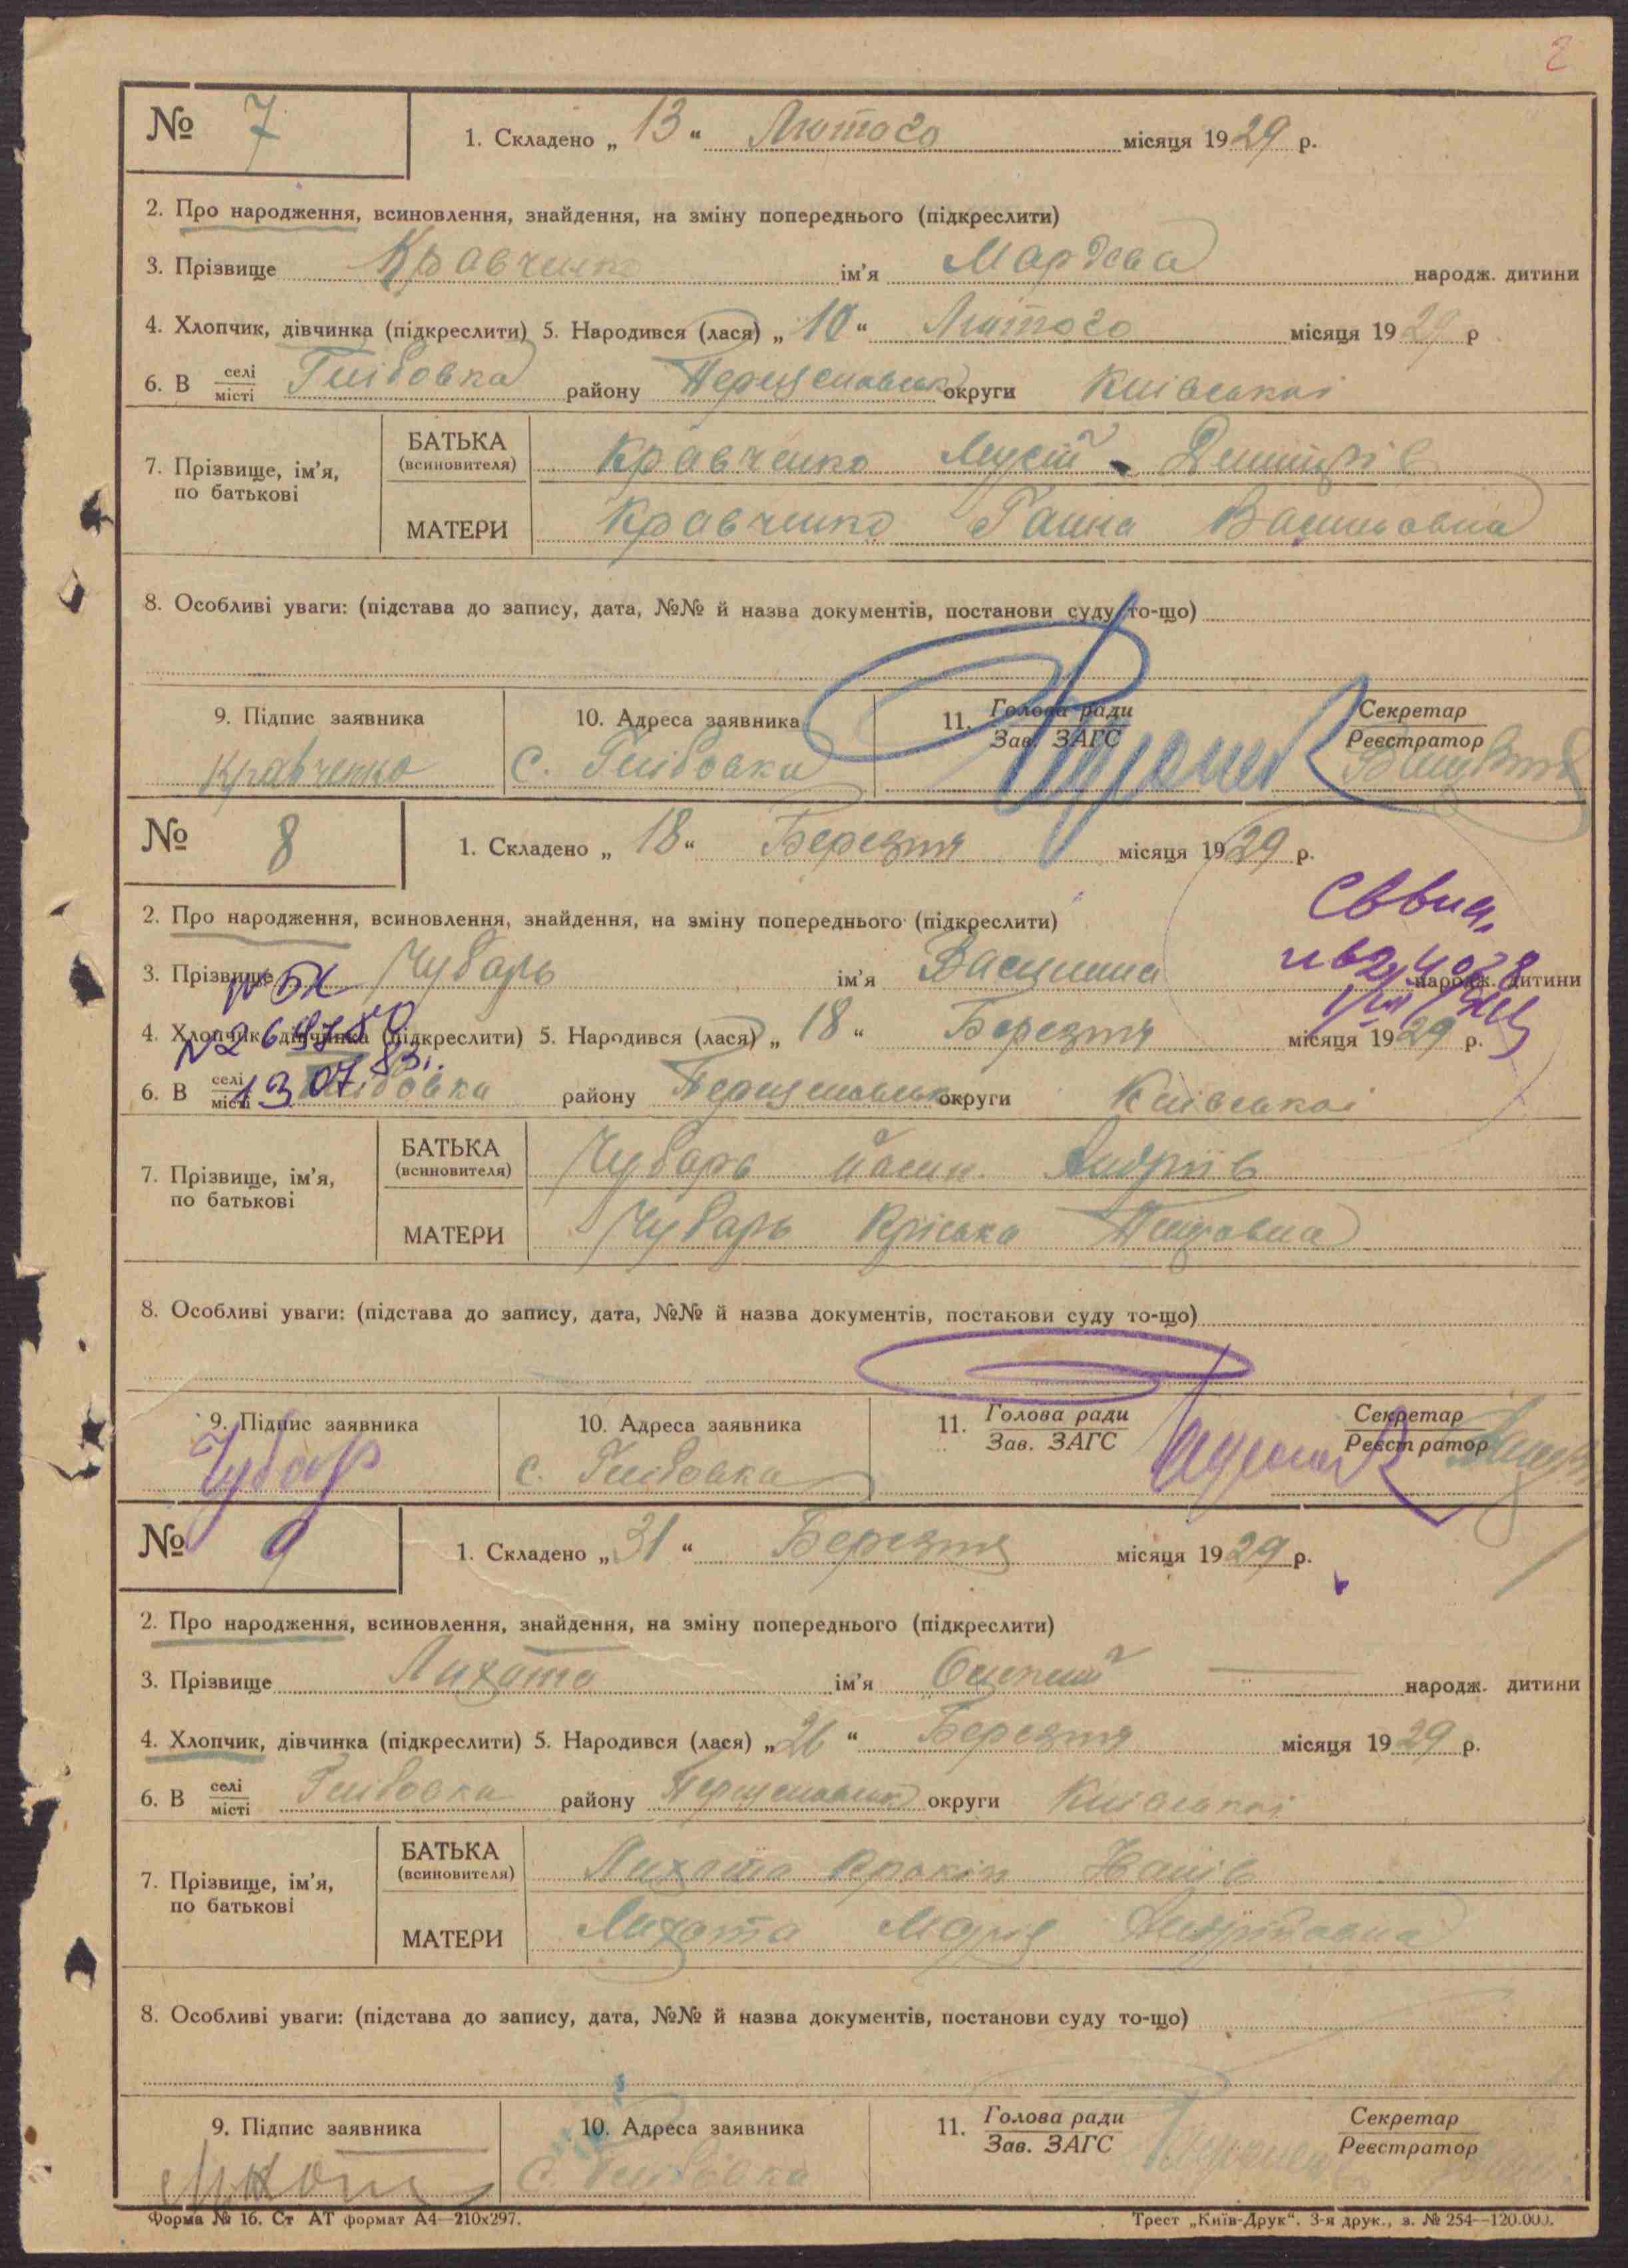 2
№ 7
1. Складено „ 13 “ Лютого місяця 1929 р.
2. Про народження, всиновлення, знайдення, на зміну попереднього (підкреслити)
3. Прізвище Кравченко ім’я народж. дитини
4. Хлопчик, дівчинка (підкреслити) 5. Народився (лася) „ 10 “ Лютого місяця 1929 р
6. В селі/місті Глібовка району округи Київської
7. Прізвище, ім’я, по батькові
БАТЬКА (всиновителя) Кравченко Мусій
МАТЕРИ Кравченко Ганна Васильовна
8. Особливі уваги: (підстава до запису, дата, №№ й назва документів, постанови суду то-що)
9. Підпис заявника 10. Адреса заявника 11. Голова ради/Зав. ЗАГС Секретар/Реєстратор
Кравченко с. Глібовка
№ 8
1. Складено „ 18 “ Березня місяця 1929 р.
2. Про народження, всиновлення, знайдення, на зміну попереднього (підкреслити)
3. Прізвище Чубарь ім’я народж. дитини
4. Хлопчик, дівчинка (підкреслити) 5. Народився (лася) „ 18 “ Березня місяця 1929 р.
6. В селі/місті Глібовка району округи Київської
7. Прізвище, ім’я, по батькові
БАТЬКА (всиновителя) Чубарь Андріїв
МАТЕРИ Чубарь
8. Особливі уваги: (підстава до запису, дата, №№ й назва документів, постанови суду то-що)
9. Підпис заявника 10. Адреса заявника 11. Голова ради/Зав. ЗАГС Секретар/Реєстратор
Чубар с. Глібовка
№ 9
1. Складено „ 31 “ Березня місяця 1929 р.
2. Про народження, всиновлення, знайдення, на зміну попереднього (підкреслити)
3. Прізвище Лихота ім’я народж. дитини
4. Хлопчик, дівчинка (підкреслити) 5. Народився (лася) „ 26 “ Березня місяця 1929 р.
6. В селі/місті Глібовка району округи Київської
7. Прізвище, ім’я, по батькові
БАТЬКА (всиновителя) Лихота
МАТЕРИ Лихота Марія
8. Особливі уваги: (підстава до запису, дата, №№ й назва документів, постанови суду то-що)
9. Підпис заявника 10. Адреса заявника 11. Голова ради/Зав. ЗАГС Секретар/Реєстратор
с. Глібовка
Форма № 16. Ст АТ формат А4—210х297. Трест „Київ-Друк“. 3-я друк., з. № 254—120.000.